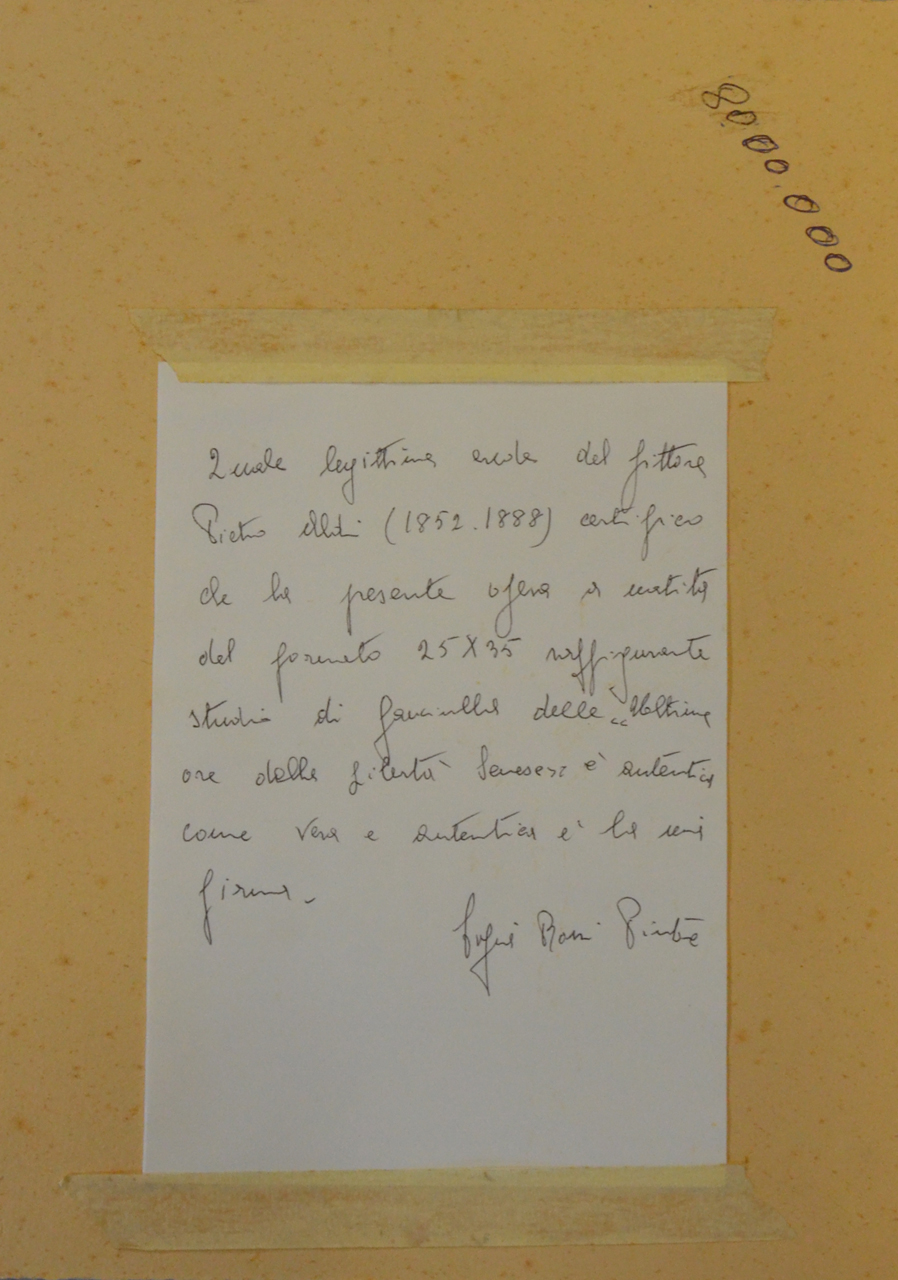 80.00.000
Quale legittima erede del pittore
Pietro Aldi (1852.1888) certifico
che la presente opera a matita
del formato 25X35 raffigurante
studio di fanciulla delle "Ultime
ore della libertà Senese" è autentica
come vera e autentica è la mia
firma.
Rossi